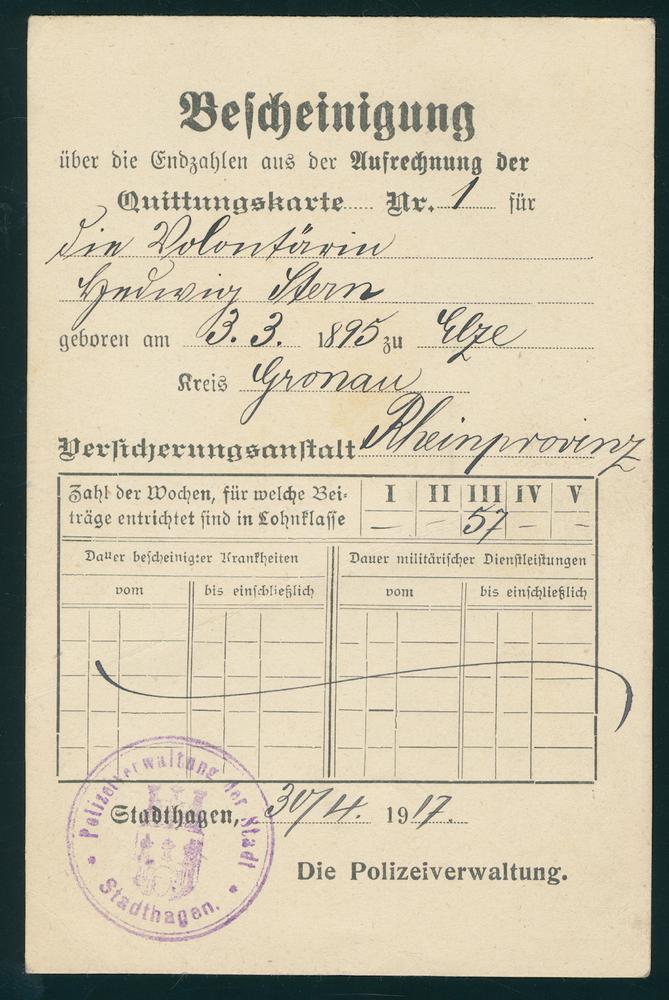 Bescheinigung
über die Endzahlen aus der Aufrechnung der
Quittungskarte Nr. 1 für
die Volontärin
Hedwig Stern
geboren am 3. 3. 1895 zu Elze
Kreis Gronau
Versicherungsanstalt Rheinprovinz
Zahl der Wochen, für welche Bei-
träge entrichtet sind in Lohnklasse
I II III IV V
— — 57 — —
Dauer bescheinigter Krankheiten Dauer militärischer Dienstleistungen
vom bis einschließlich vom bis einschließlich
Stadthagen, 30/4. 1917.
Die Polizeiverwaltung.
Polizeiverwaltung der Stadt
Stadthagen.